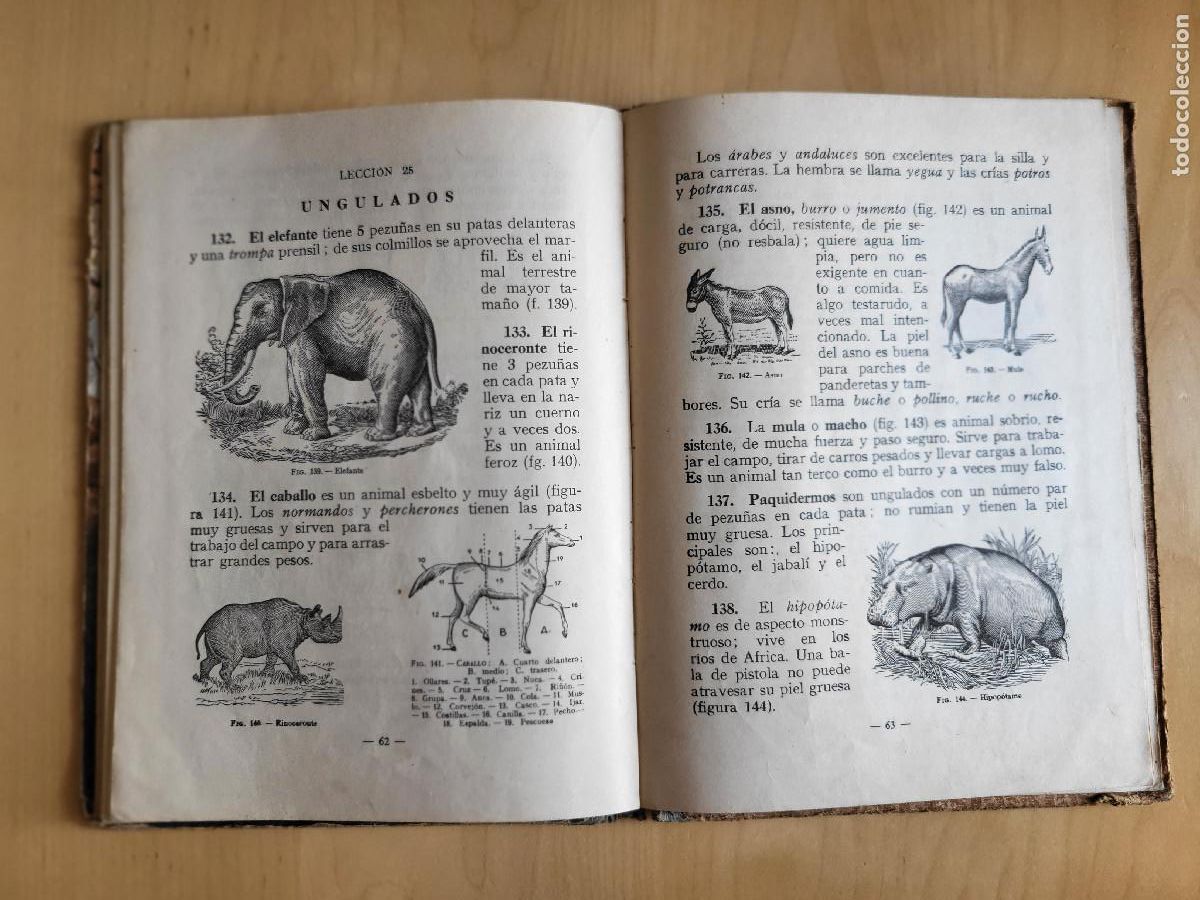 LECCIÓN 25
UNGULADOS
132. El elefante tiene 5 pezuñas en su patas delanteras
y una trompa prensil; de sus colmillos se aprovecha el mar-
fil. Es el ani-
mal terrestre
de mayor ta-
maño (f. 139).
133. El ri-
noceronte tie-
ne 3 pezuñas
en cada pata y
lleva en la na-
riz un cuerno
y a veces dos.
Es un animal
feroz (fg. 140).
FIG. 139.—Elefante
134. El caballo es un animal esbelto y muy ágil (figu-
ra 141). Los normandos y percherones tienen las patas
muy gruesas y sirven para el
trabajo del campo y para arras-
trar grandes pesos.
FIG. 140.—Rinoceronte
3
2
1
4
19
5
6
7
8
9
10
11
14
15
17
18
12
16
13
C
B
A.
FIG. 141.—CABALLO: A. Cuarto delantero;
B. medio; C. trasero.
1. Ollares.—2. Tupé.—3. Nuca.—4. Cri-
nes.—5. Cruz—6. Lomo.—7. Riñón.—
8. Grupa.—9. Anca.—10. Cola.—11. Mus-
lo.—12. Corvejón.—13. Casco.—14. Ijar.
—15. Costillas.—16. Canilla.—17. Pecho.—
18. Espalda.—19. Pescuezo
— 62 —
Los árabes y andaluces son excelentes para la silla y
para carreras. La hembra se llama yegua y las crías potros
y potrancas.
135. El asno, burro o jumento (fig. 142) es un animal
de carga, dócil, resistente, de pie se-
guro (no resbala); quiere agua lim-
pia, pero no es
exigente en cuan-
to a comida. Es
algo testarudo, a
veces mal inten-
cionado. La piel
del asno es buena
para parches de
panderetas y tam-
bores. Su cría se llama buche o pollino, ruche o rucho.
FIG. 142.—Asno
FIG. 143.—Mulo
136. La mula o macho (fig. 143) es animal sobrio, re-
sistente, de mucha fuerza y paso seguro. Sirve para traba-
jar el campo, tirar de carros pesados y llevar cargas a lomo.
Es un animal tan terco como el burro y a veces muy falso.
137. Paquidermos son ungulados con un número par
de pezuñas en cada pata; no rumian y tienen la piel
muy gruesa. Los prin-
cipales son:, el hipo-
pótamo, el jabalí y el
cerdo.
138. El hipopóta-
mo es de aspecto mons-
truoso; vive en los
ríos de Africa. Una ba-
la de pistola no puede
atravesar su piel gruesa
(figura 144).
FIG. 144.—Hipopótamo
— 63 —
todocoleccion